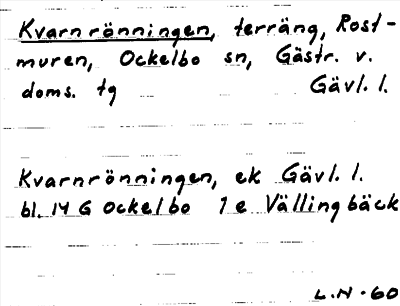 Kvarnrönningen, terräng, Rost-
muren, Ockelbo sn, Gästr. v.
doms. tg Gävl. l.
Kvarnrönningen, ek Gävl. l.
bl. 14 G Ockelbo 1 e Vällingbäck
L.N-60